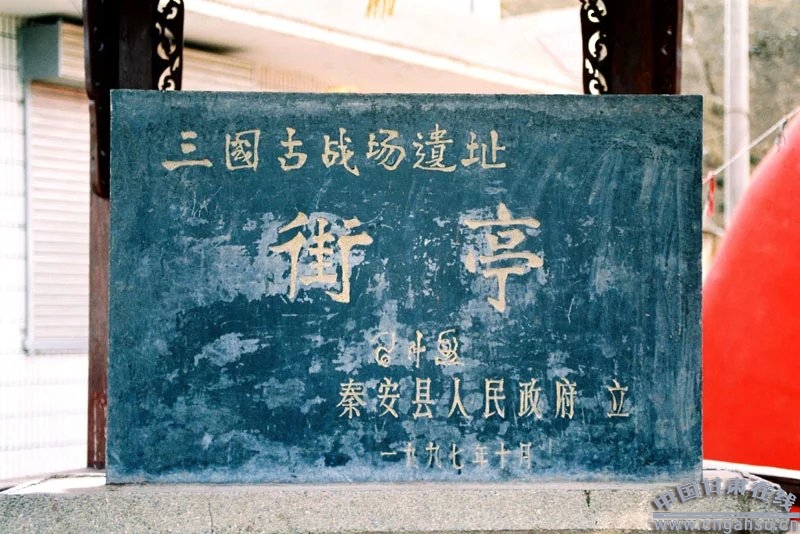 三國古战场遺址
街亭
秦安县人民政府 立
一九九七年十月
中国甘肃在线
www.chgansu.cn